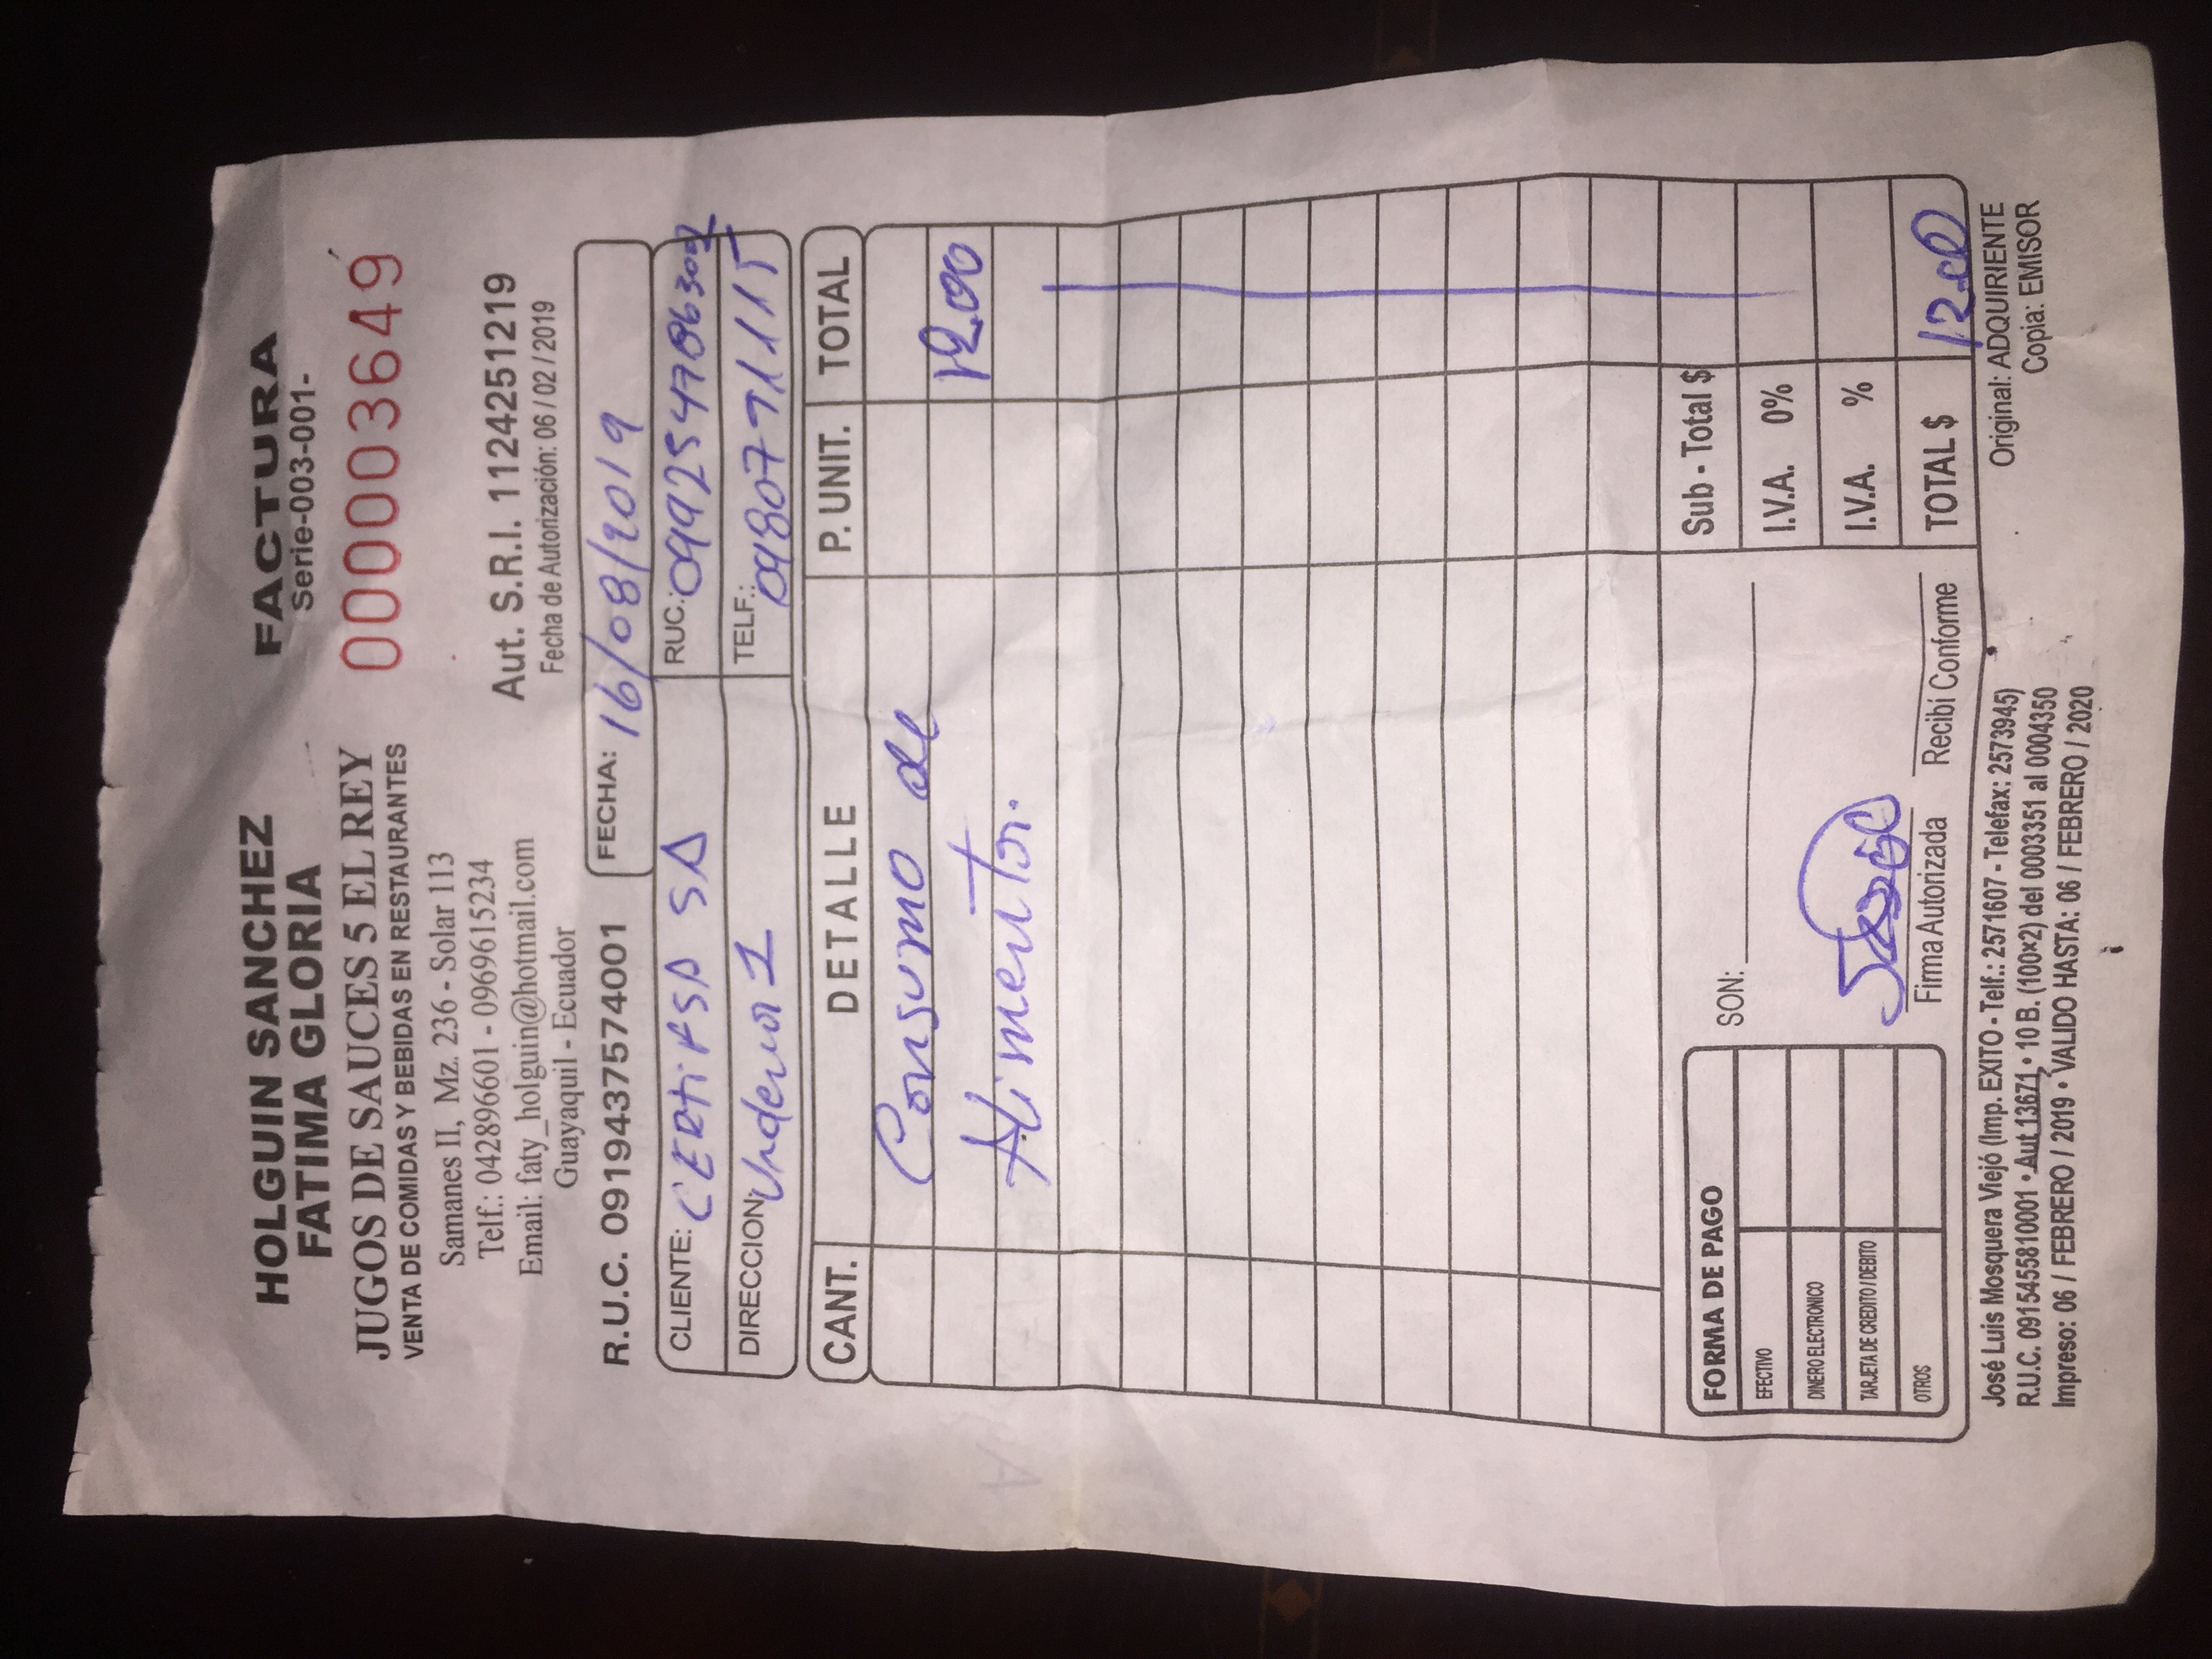 HOLGUIN SANCHEZ
FATIMA GLORIA
JUGOS DE SAUCES 5 EL REY
VENTA DE COMIDAS Y BEBIDAS EN RESTAURANTES
Samanes II, Mz. 236 - Solar 113
Telf.: 042896601 - 0969615234
Email: faty_holguin@hotmail.com
Guayaquil - Ecuador
R.U.C. 0919437574001
FACTURA
Serie-003-001-
000003649
Aut. S.R.I. 1124251219
Fecha de Autorización: 06 / 02 / 2019
FECHA: 16/08/2019
CLIENTE: CERTIFSA SA
RUC.:
DIRECCION:
TELF.: 0980791115
CANT. DETALLE P. UNIT. TOTAL
Consumo de
12.00
Alimentos.
FORMA DE PAGO
EFECTIVO
DINERO ELECTRONICO
TARJETA DE CREDITO / DEBITO
OTROS
SON:
Firma Autorizada
Recibí Conforme
Sub - Total $
I.V.A. 0%
I.V.A. %
TOTAL $ 12.00
José Luis Mosquera Viejó (Imp. EXITO - Telf.: 2571607 - Telefax: 2573945)
R.U.C. 0915455810001 • Aut 13671 • 10 B. (100×2) del 0003351 al 0004350
Impreso: 06 / FEBRERO / 2019 • VALIDO HASTA: 06 / FEBRERO / 2020
Original: ADQUIRIENTE
Copia: EMISOR